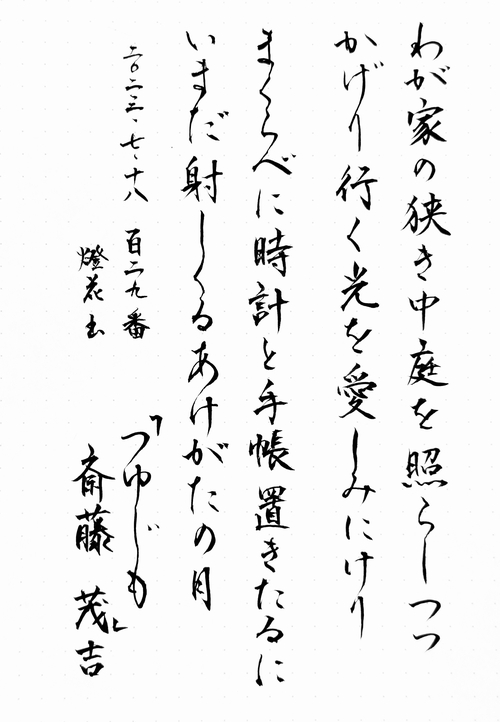 わが家の狭き中庭を照らしつつ
かげり行く光を愛しみにけり
まくらべに時計と手帳置きたるに
いまだ射しくるあけがたの月
二〇二三、七、十八 百二九番
燈花书
『つゆじも』
斎藤 茂吉